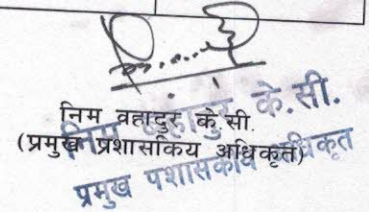 निम वहादुर के.सी.
(प्रमुख प्रशासकिय अधिकृत)
निम बहादुर के.सी.
प्रमुख प्रशासकीय अधिकृत